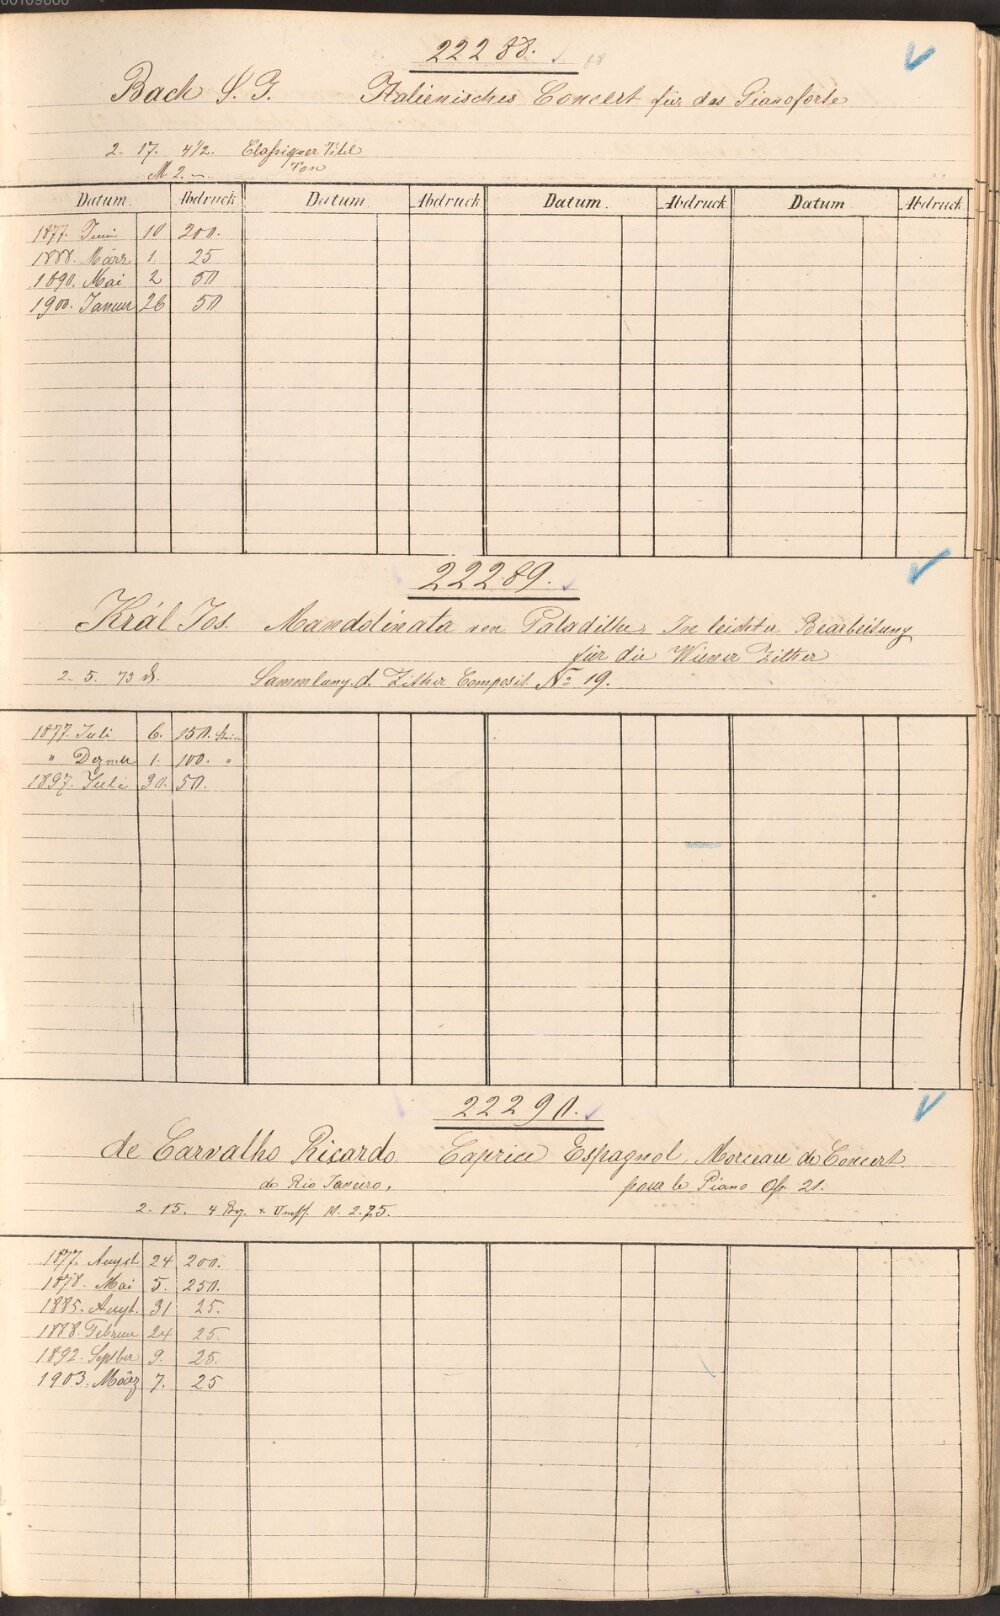 22288.
Bach S. J. Italienisches Concert für das Pianoforte
2. 17. 4/2. Titel
M. 2. — Ton
Datum. Abdruck Datum. Abdruck Datum. Abdruck Datum Abdruck
1877. Juni 10 200.
1888. März 1. 25
1890. Mai 2 50
1900. Januar 26 50
22289.
Král Jos. Mandolinata von Paladilhe. In leichter Bearbeitung
für die Wiener Zither
2. 5. 75 d. Sammlung d. Zither Composit. No 19.
1877. Juli 6. 150.
" Dezmber 1. 100. "
1897. Juli 30. 50.
22290.
de Carvalho Ricardo. Caprice Espagnol, Morceau de Concert
de Rio Janeiro. pour le Piano Op. 21.
2. 15. 4 M. 2.75.
1877. August 24 200.
1878. Mai 5. 250.
1885. Augt. 31 25.
1888. Februar 24 25
1892. Septber 9. 25.
1903. März 7. 25